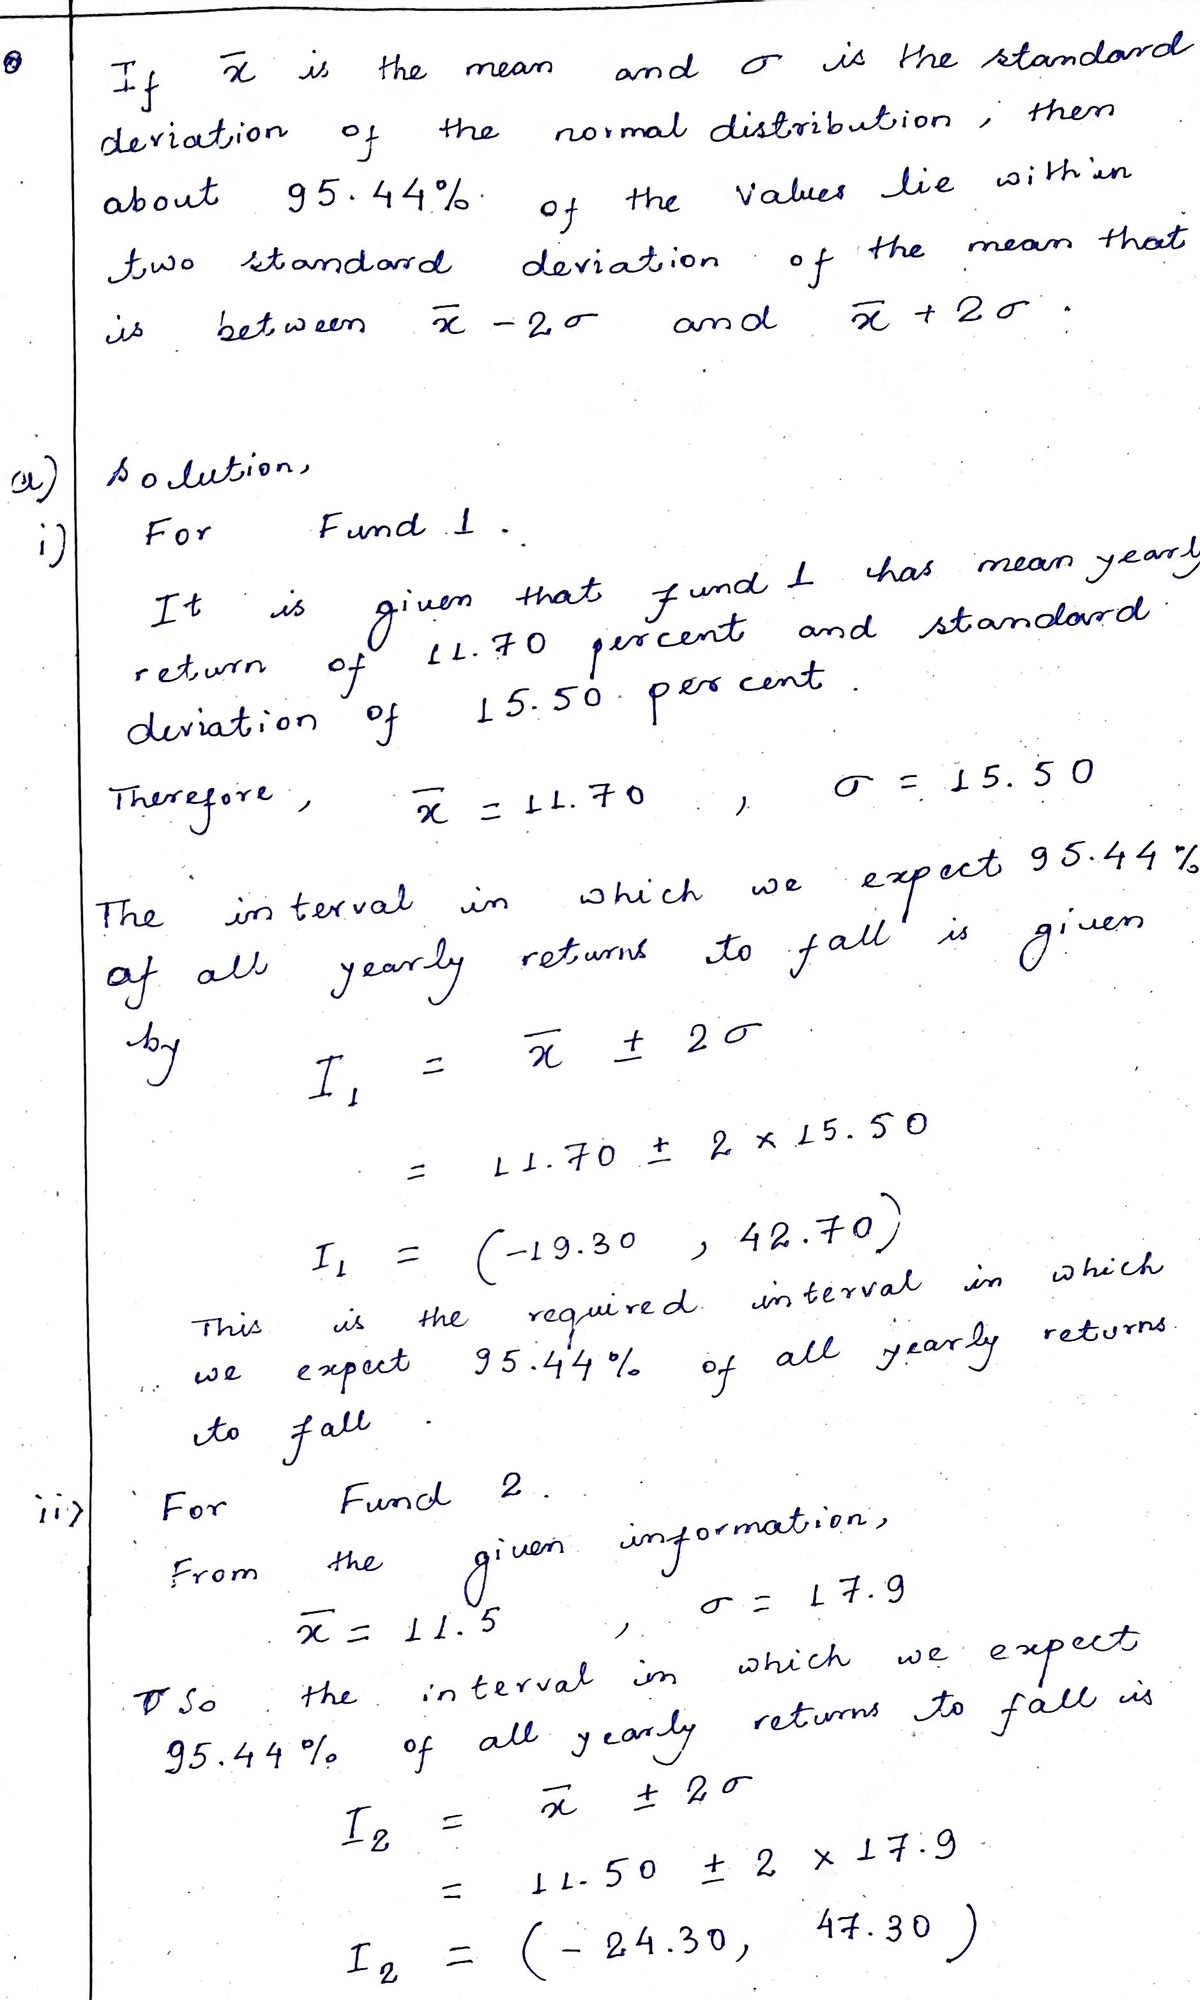 If x̄ is the mean and σ is the standard
deviation of the normal distribution, then
about 95.44% of the values lie within
two standard deviation of the mean that
is between x̄ - 2σ and x̄ + 2σ.
a) Solution,
i) For Fund 1.
It is given that fund 1 has mean yearly
return of 11.70 percent and standard
deviation of 15.50 percent.
Therefore, x̄ = 11.70 , σ = 15.50
The interval in which we expect 95.44%
of all yearly returns to fall is given
by I₁ = x̄ ± 2σ
= 11.70 ± 2 × 15.50
I₁ = (-19.30 , 42.70)
This is the required interval in which
we expect 95.44% of all yearly returns
to fall.
ii) For Fund 2.
From the given information,
x̄ = 11.5 , σ = 17.9
So the interval in which we expect
95.44% of all yearly returns to fall is
I₂ = x̄ ± 2σ
= 11.50 ± 2 × 17.9
I₂ = (-24.30, 47.30)